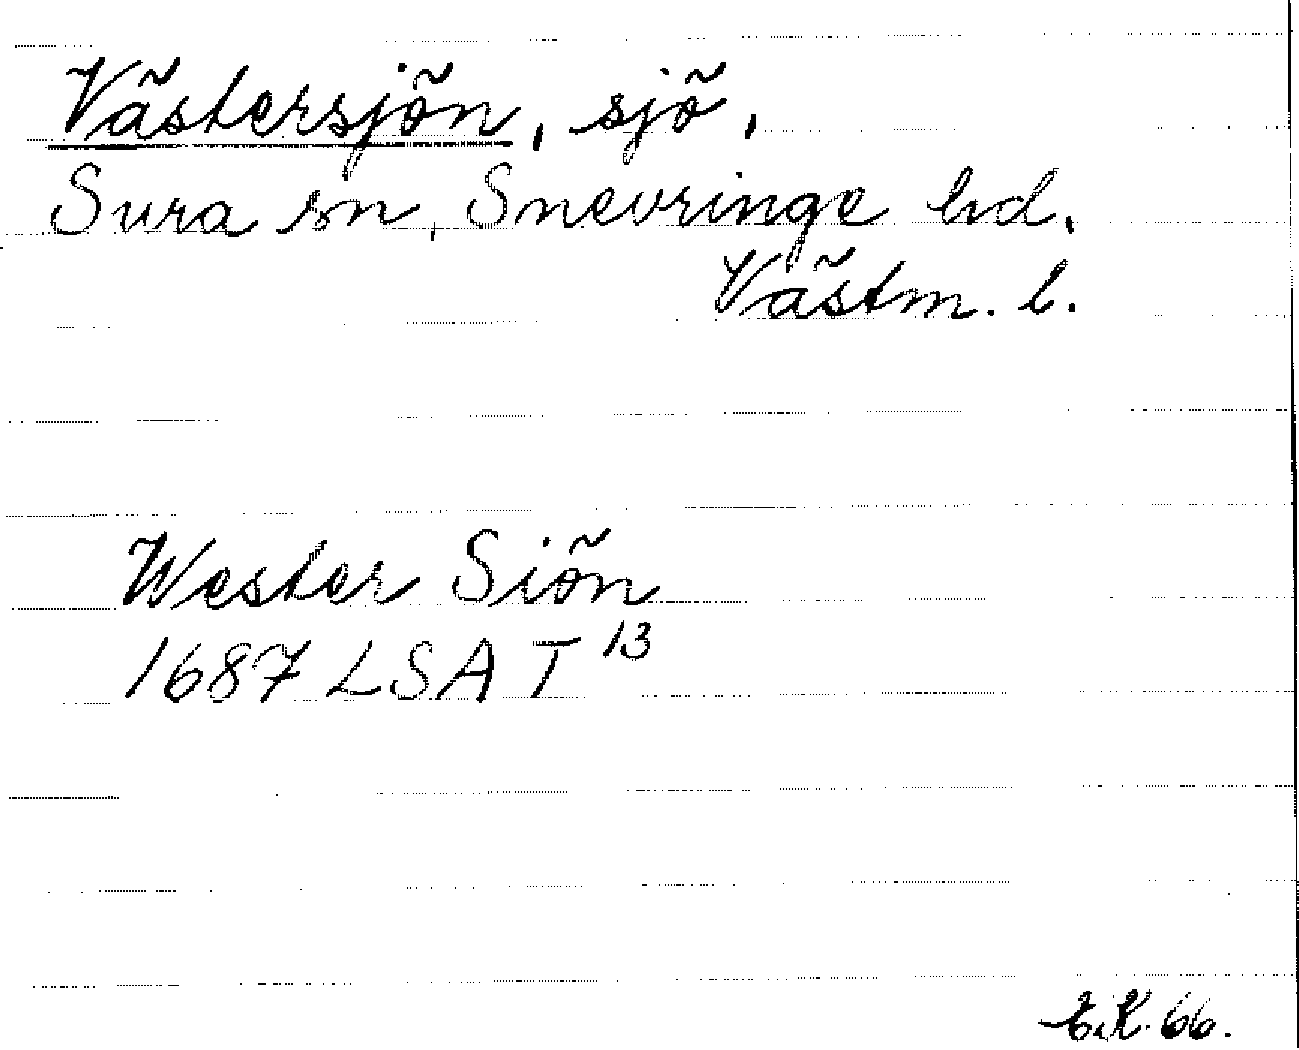 Västersjön, sjö,
Sura sn, Snevringe hd,
Västm. l.
Wester Siön
1687 LSA T 13
E.K. 66.